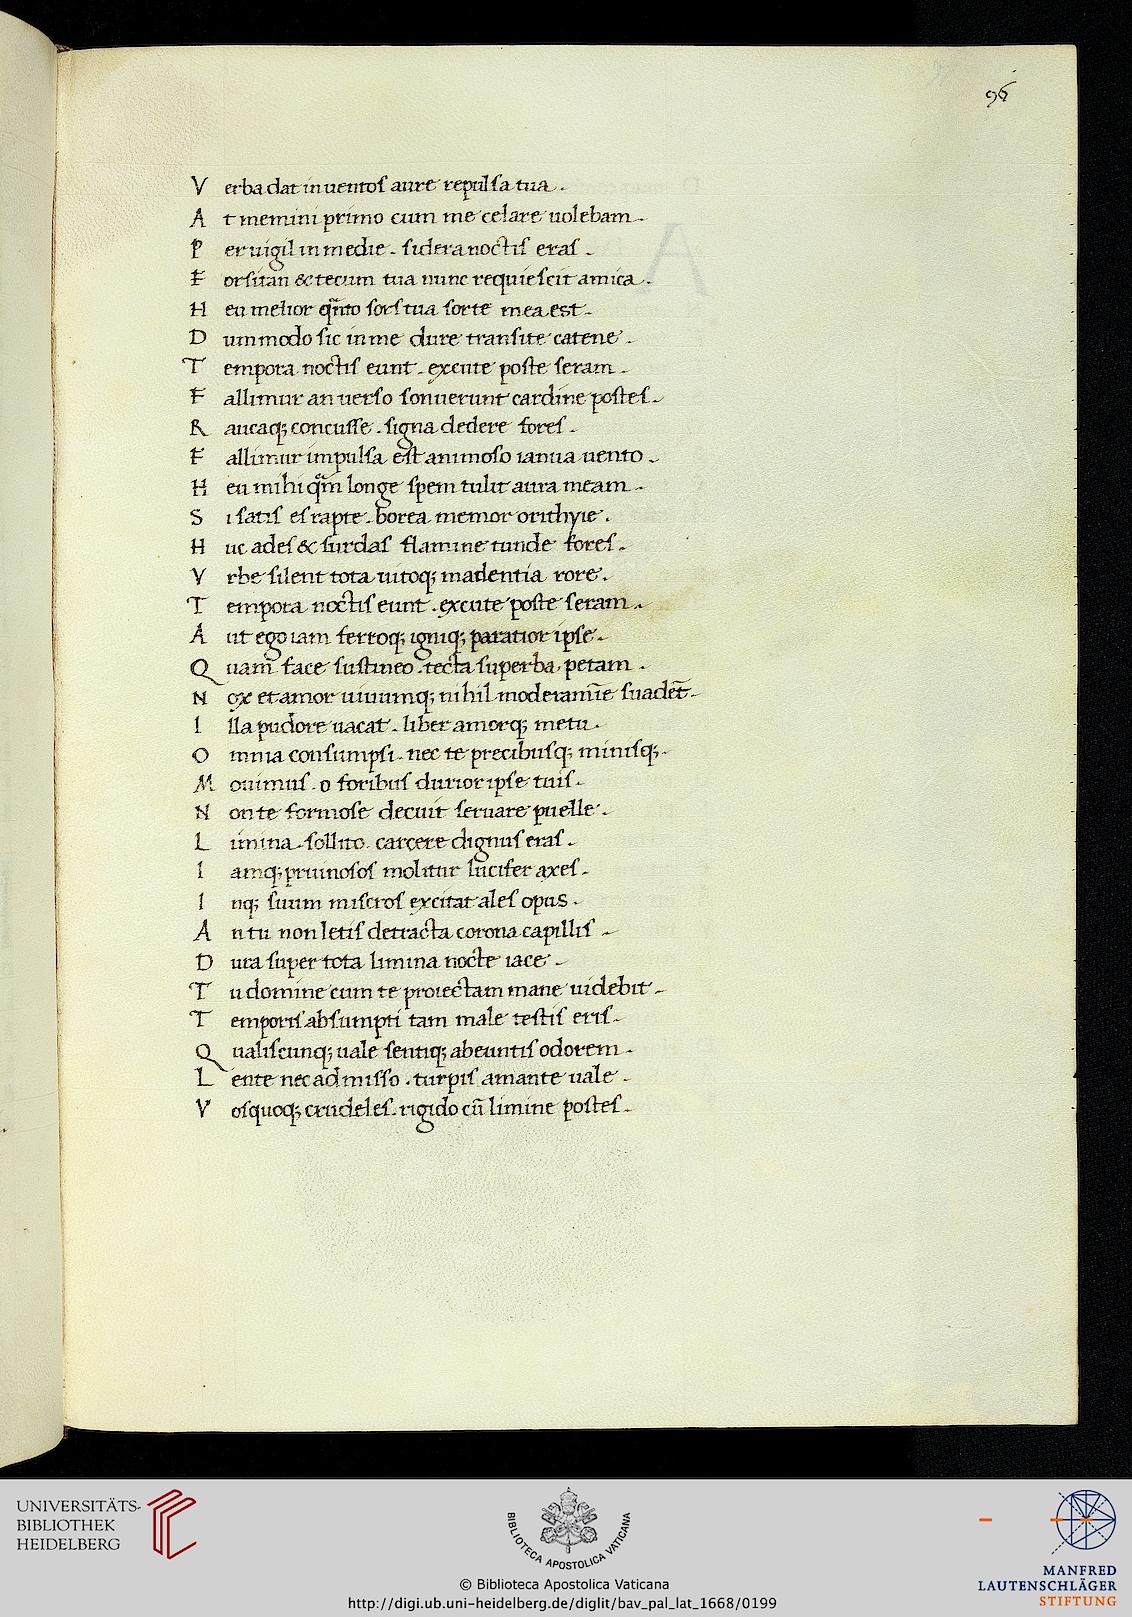 96
V erba dat in uentos aure repulsa tua .
A t memini primo cum me celare uolebam .
P er uigil in medie . sidera noctis eras .
F orsitan & tecum tua nunc requiescit amica .
H eu melior qũto sors tua sorte mea est .
D um modo sic in me dure transite catene .
T empora noctis eunt . excute poste seram .
F allimur an uerso sonuerunt cardine postes .
R aucaq; concusse . signa dedere fores .
F allimur impulsa est animoso ianua uento .
H eu mihi q̃m longe spem tulit aura meam .
S i satis es rapte . borea memor orithyie .
H uc ades & surdas flamine tunde fores .
V rbe silent tota uitoq; madentia rore .
T empora noctis eunt . excute poste seram .
A ut ego iam ferroq; igniq; paratior ipse .
Q uam̃ face sustineo . tecta superba petam .
N ox et amor uiuumq; nihil moderamĩe suadet̃ .
I lla pudore uacat . liber amorq; metu .
O mnia consumpsi . nec te precibusq; minisq; .
M ouimus . o foribus durior ipse tuis .
N on te formose decuit seruare puelle .
L imina . sollito . carcere dignus eras .
I amq; pruinosos molitur lucifer axes .
I nq; suum miseros excitat ales opus .
A n tu non letis detracta corona capillis .
D ura super tota limina nocte iace .
T u domine cum te proiectam mane uidebit .
T emporis absumpti tam male testis eris .
Q ualiscunq; uale sentiq; abeuntis odorem .
L ente nec admisso . turpis amante uale .
V osquoq; crudeles . rigido cũ limine postes .
UNIVERSITÄTS-
BIBLIOTHEK
HEIDELBERG
BIBLIOTECA APOSTOLICA VATICANA
© Biblioteca Apostolica Vaticana
http://digi.ub.uni-heidelberg.de/diglit/bav_pal_lat_1668/0199
MANFRED
LAUTENSCHLÄGER
STIFTUNG